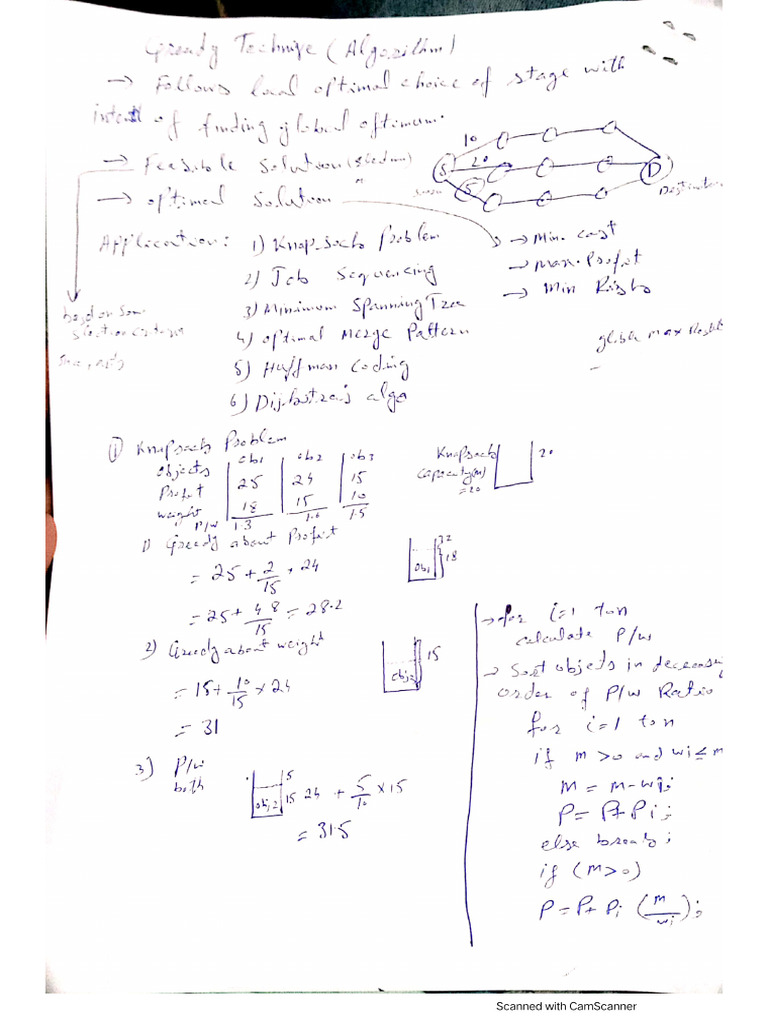 Greedy Technique (Algorithm)
→ Follows local optimal choice of stage with
intent of finding global optimum.
→ Feasible Solution
→ optimal Solution
10
20
5
S
D
Source
Application:
1) Knapsack Problem
2) Job Sequencing
3) Minimum Spanning Tree
4) optimal Merge Pattern
5) Huffman Coding
6) Dijkstra's algo
→ Min. Cost
→ Max. Profit
→ Min Risk
based on Some
Selection criteria
global max
① Knapsack Problem
objects ob1 ob2 ob3
Profit 25 24 15
weight 18 15 10
P/w 1.3 1.6 1.5
Knapsack
Capacity(m)
=20
20
1) Greedy about Profit
= 25 + 2/15 * 24
= 25 + 48/15 = 28.2
ob1
2
18
2) Greedy about weight
= 15 + 10/15 x 24
= 31
15
3) P/w
both
obj2
5
15
24 + 5/10 x 15
= 31.5
→ for i=1 to n
calculate P/w
→ Sort objects in decreasing
order of P/w Ratio
for i=1 to n
if m >0 and wi ≤ m
m = m-wi;
P = P+Pi;
else break;
if (m>0)
P = P+ Pi (m/wi);
Scanned with CamScanner